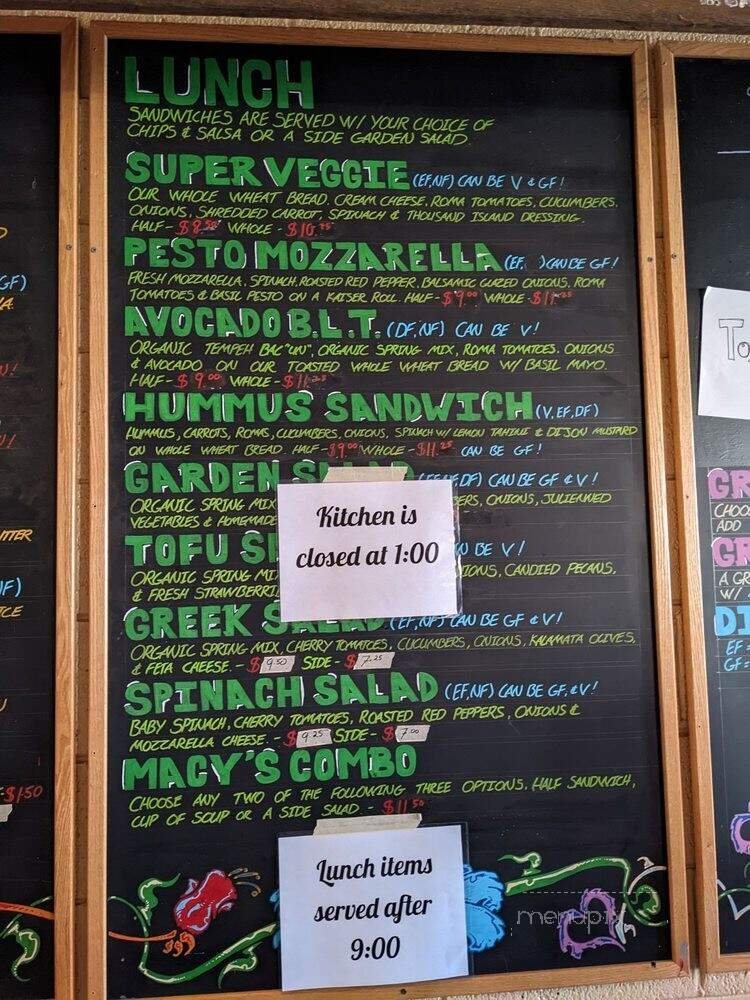 LUNCH
SANDWICHES ARE SERVED W/ YOUR CHOICE OF
CHIPS & SALSA OR A SIDE GARDEN SALAD.
SUPER VEGGIE (EF,NF) CAN BE V & GF!
OUR WHOLE WHEAT BREAD, CREAM CHEESE, ROMA TOMATOES, CUCUMBERS,
ONIONS, SHREDDED CARROT, SPINACH & THOUSAND ISLAND DRESSING.
HALF- $8.50 WHOLE - $10.75
PESTO MOZZARELLA (EF, ) CAN BE GF!
FRESH MOZZARELLA, SPINACH, ROASTED RED PEPPER, BALSAMIC GLAZED ONIONS, ROMA
TOMATOES & BASIL PESTO ON A KAISER ROLL. HALF- $9.00 WHOLE - $11.25
AVOCADO B.L.T. (DF,NF) CAN BE V!
ORGANIC TEMPEH BAC"UN", ORGANIC SPRING MIX, ROMA TOMATOES, ONIONS
& AVOCADO ON OUR TOASTED WHOLE WHEAT BREAD W/ BASIL MAYO.
HALF- $9.00 WHOLE - $11.25
HUMMUS SANDWICH (V,EF,DF)
HUMMUS, CARROTS, ROMAS, CUCUMBERS, ONIONS, SPINACH W/ LEMON TAHINI & DIJON MUSTARD
ON WHOLE WHEAT BREAD. HALF- $9.00 WHOLE - $11.25 CAN BE GF!
GARDEN SALAD (EF,NF,DF) CAN BE GF & V!
ORGANIC SPRING MIX BERS, ONIONS, JULIENNED
VEGETABLES & HOMEMADE
Kitchen is
closed at 1:00
TOFU BE V!
ORGANIC SPRING MIX IONS, CANDIED PECANS,
& FRESH STRAWBERRI
GREEK SALAD (EF,NF) CAN BE GF & V!
ORGANIC SPRING MIX, CHERRY TOMATOES, CUCUMBERS, ONIONS, KALAMATA OLIVES,
& FETA CHEESE. - $9.50 SIDE - $7.25
SPINACH SALAD (EF,NF) CAN BE GF & V!
BABY SPINACH, CHERRY TOMATOES, ROASTED RED PEPPERS, ONIONS &
MOZZARELLA CHEESE. - $9.25 SIDE - $7.00
MACY'S COMBO
CHOOSE ANY TWO OF THE FOLLOWING THREE OPTIONS. HALF SANDWICH,
CUP OF SOUP OR A SIDE SALAD - $11.50
Lunch items
served after
9:00
menupix
GF)
UTTER
NF)
ICE
$1.50
To
GR
CHOOS
ADD
GR
A GR
W/
DI
EF =
GF=